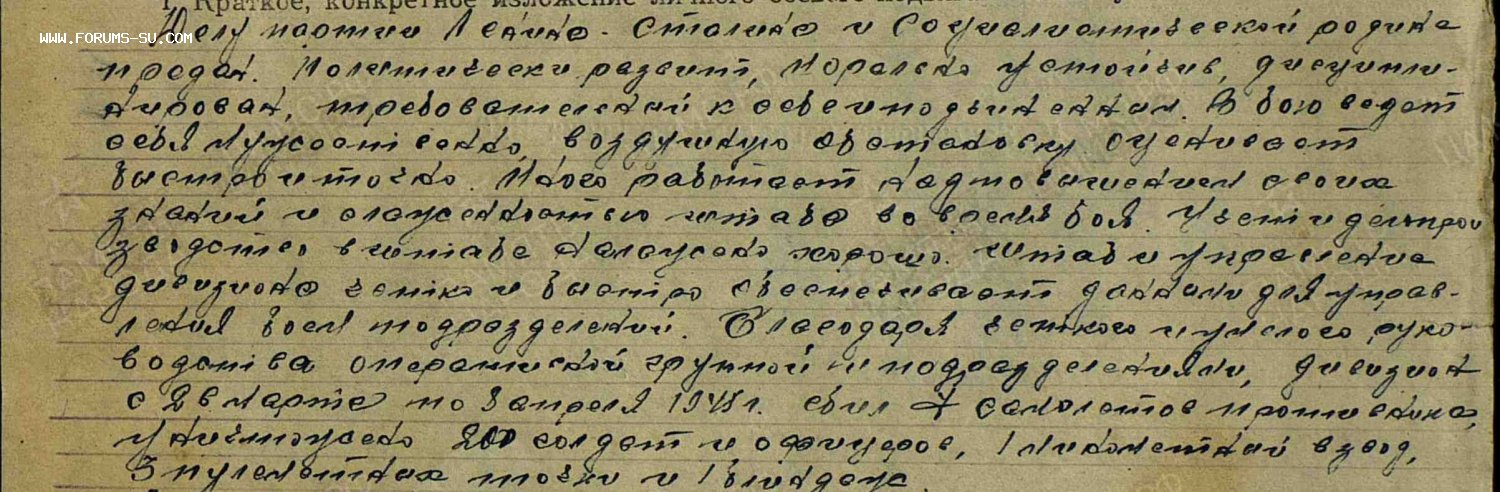 1 Краткое, конкретное изложение личного боевого
WWW.FORUMS-SU.COM
Делу партии Ленина - Сталина и Социалистической родине
предан. Политически развит, морально устойчив, дисципли-
нирован, требовательный к себе и подчиненным. В бою ведет
себя мужественно, воздушную обстановку оценивает
быстро и точно. Много работает над повышением своих
знаний и слаженностью штаба во время боя. Учет и делопрои
зводство в штабе налажено хорошо. Штаб и управление
дивизиона четко и быстро обеспечивает данными для управ-
ления боем подразделений. Благодаря четкого и умелого руко-
водства оперативной группой и подразделениями, дивизион
с 28 марта по 8 апреля 1945 г. сбил 4 самолетов противника,
уничтожено 200 солдат и офицеров, 1 минометный взвод,
5 пулеметных точки и 1 блиндаж